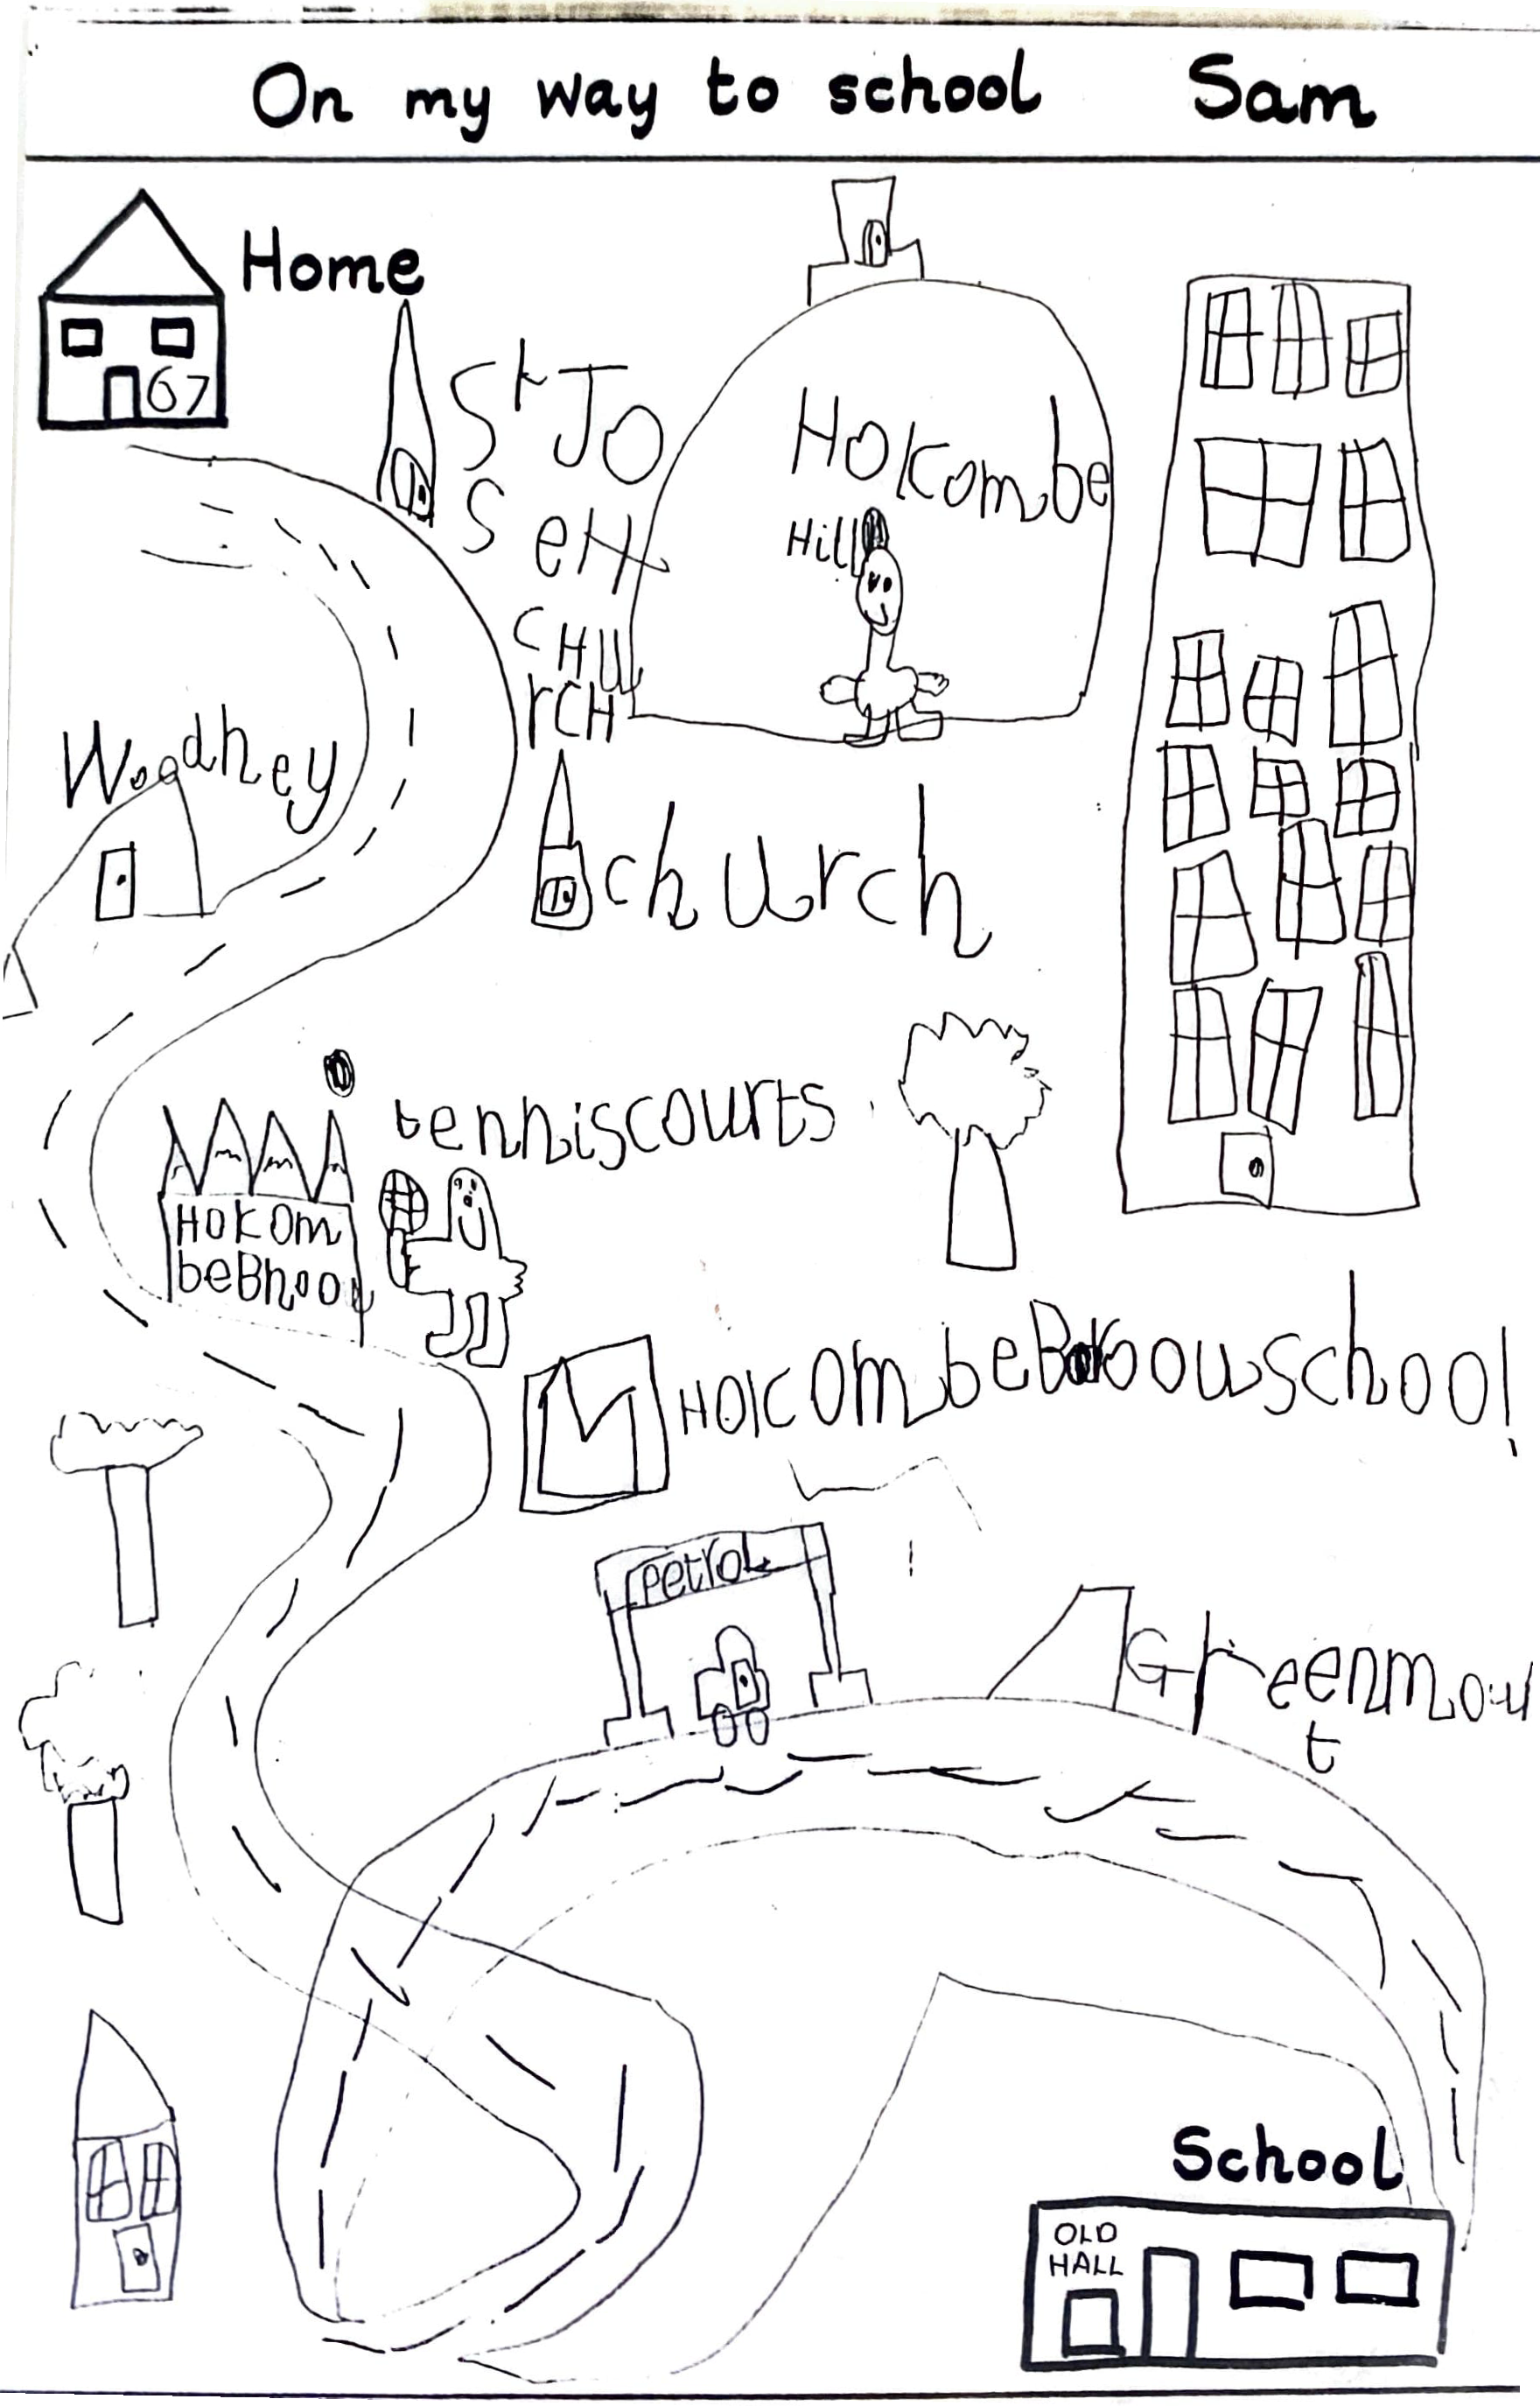 On my way to school Sam
Home
67
St Jo
s eH
CHU
rCH
HoKombe
Hill
Woodhey
church
tenniscourts
HOKOm
beBhoo
HOlCOmbeBrooowschool
petrol
Greenmou
t
School
OLD
HALL